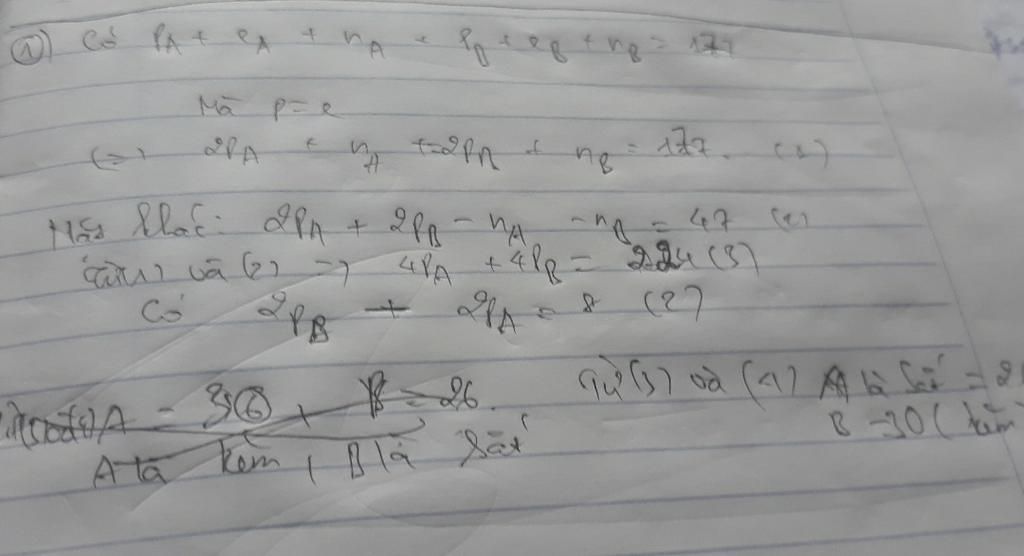 ① Có PA + eA + nA + PB + eB + nB = 177
Mà p = e
(=) 2PA + nA + 2PB + nB = 177. (1)
Mặt khác: 2PA + 2PB - nA - nB = 47 (2)
Từ (1) và (2) => 4PA + 4PB = 224 (3)
Có 2PB + 2PA = 8 (2)
Từ (3) và (4) A là Sắt = 2
A = 30 + B = 26. B = 30 ( kẽm
A là kẽm, B là Sắt